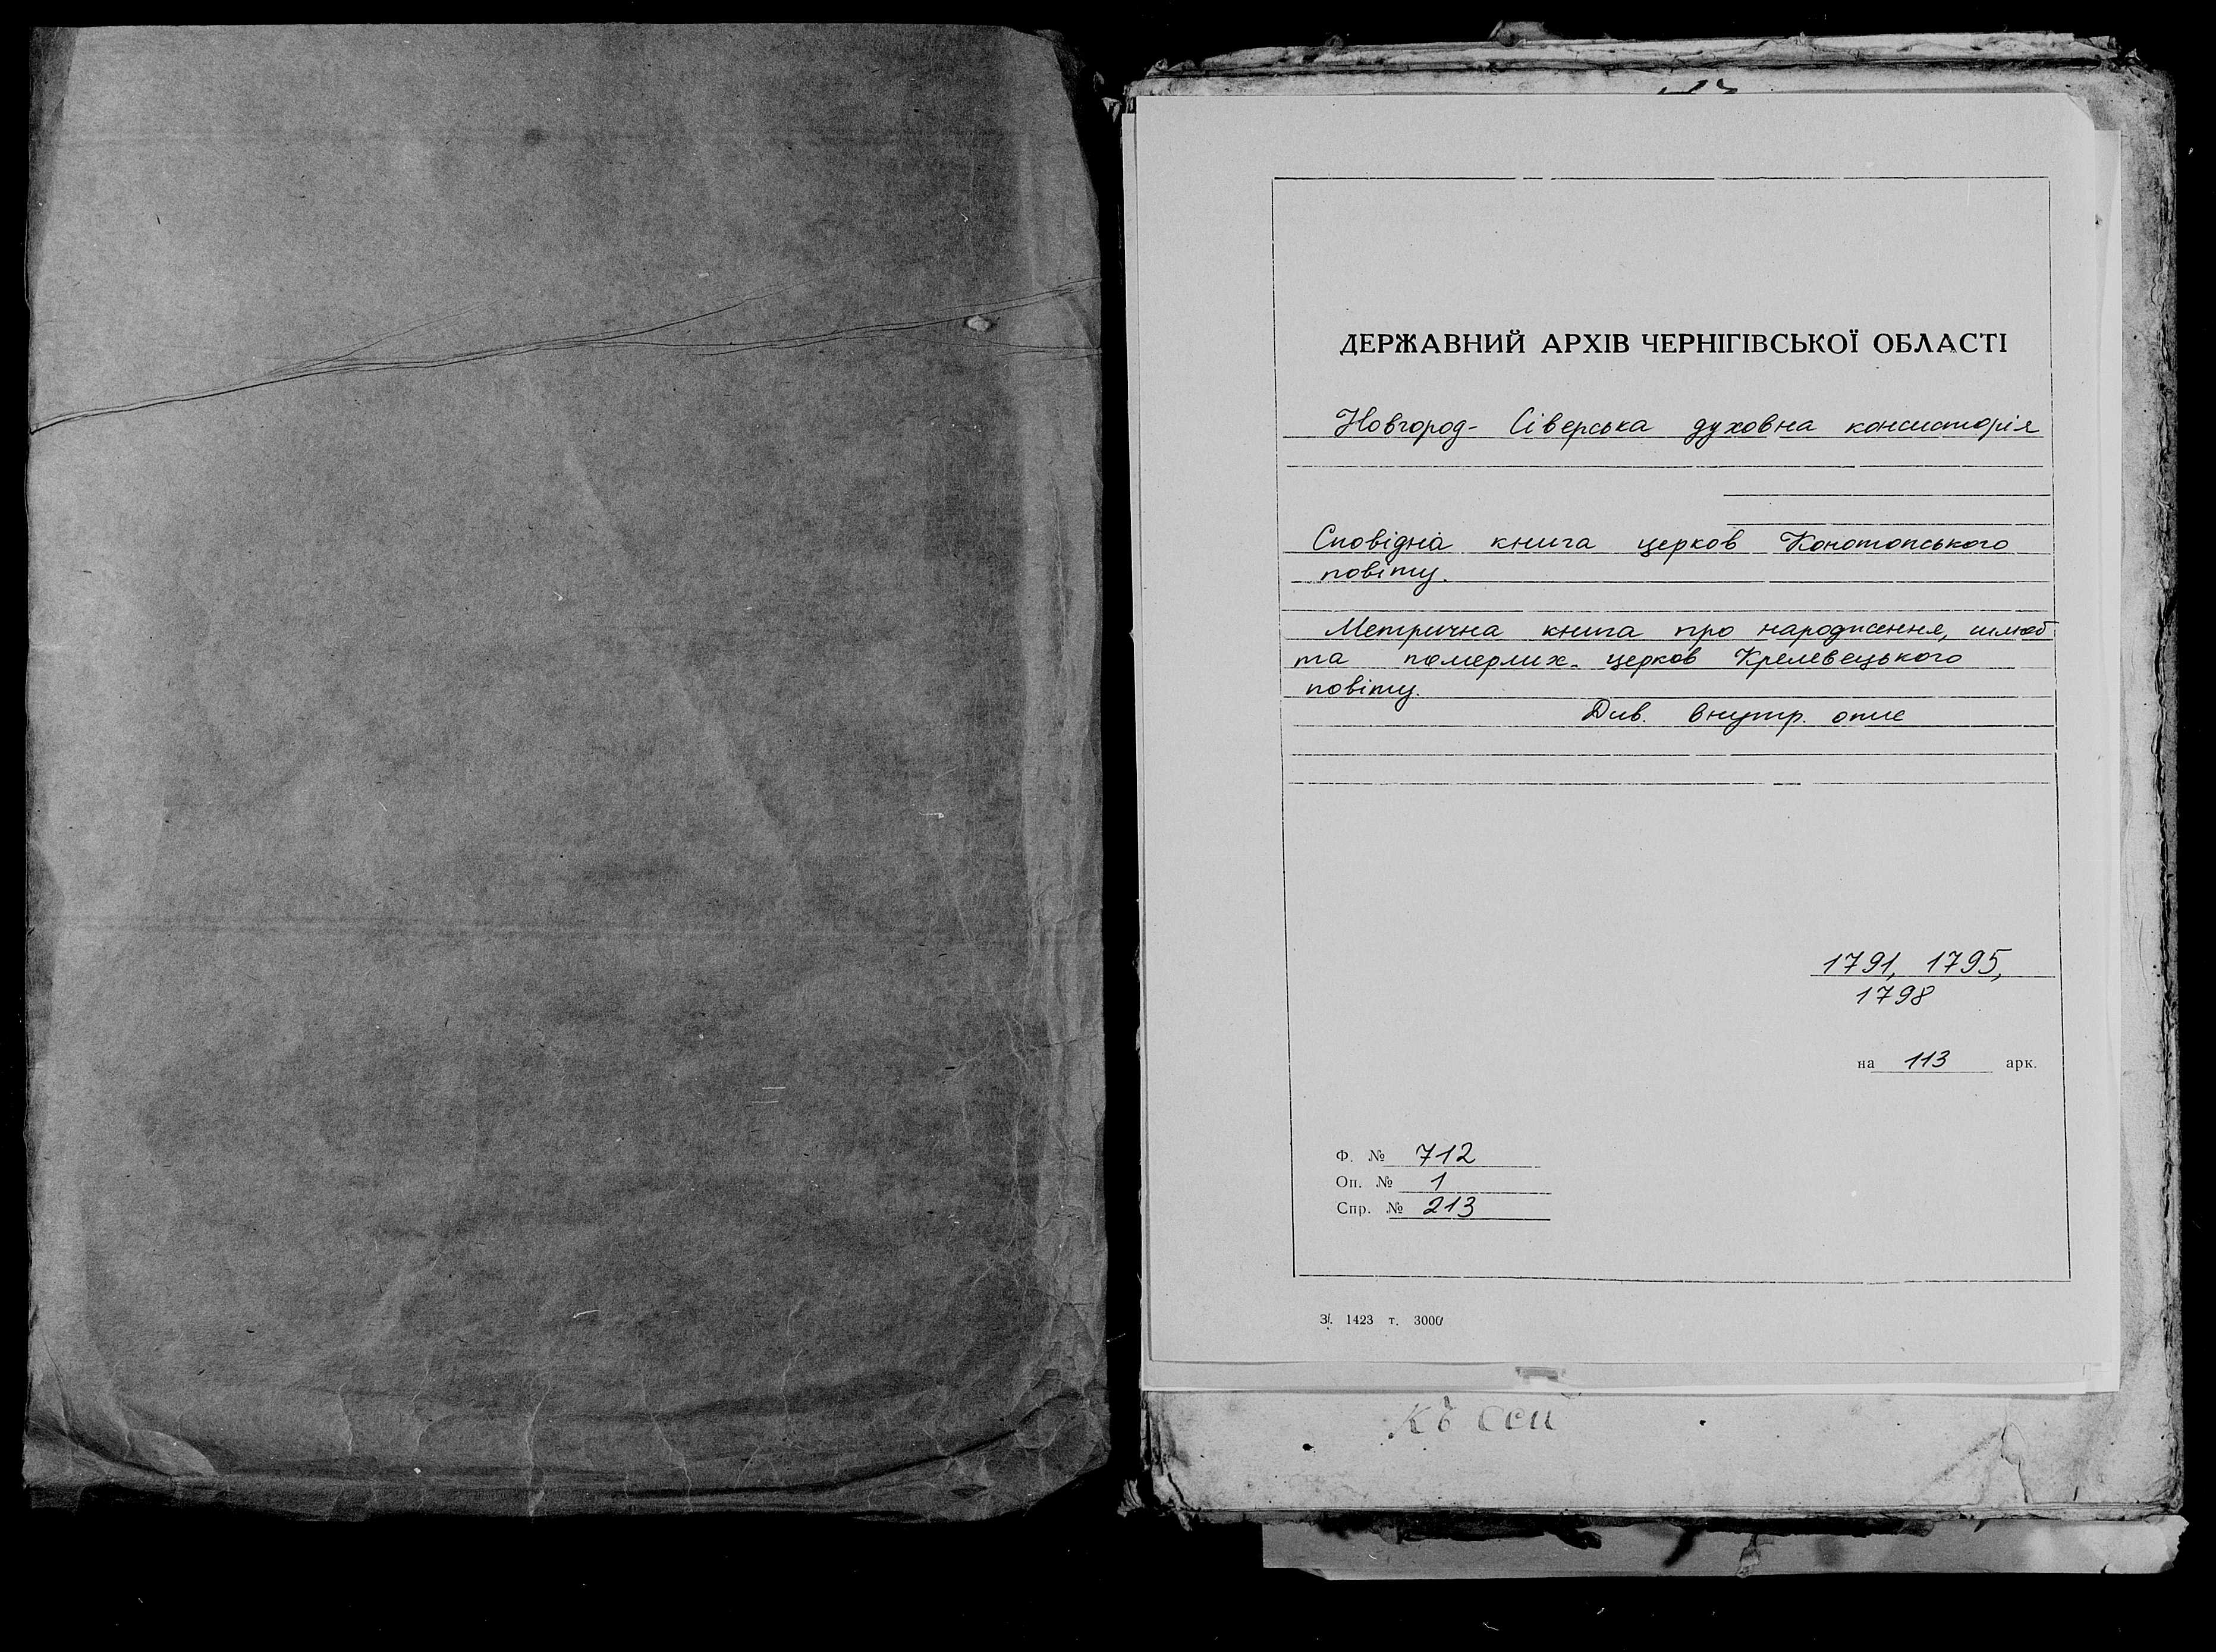 ДЕРЖАВНИЙ АРХІВ ЧЕРНІГІВСЬКОЇ ОБЛАСТІ
Новгород-Сіверська духовна консисторія
Сповідна книга церков Конотопського
повіту.
Метрична книга про народження, шлюб
та померлих. церков Кролевецького
повіту.
Див. внутр. опис
1791, 1795,
1798
на 113 арк.
Ф. № 712
Оп. № 1
Спр. № 213
З. 1423 т. 3000